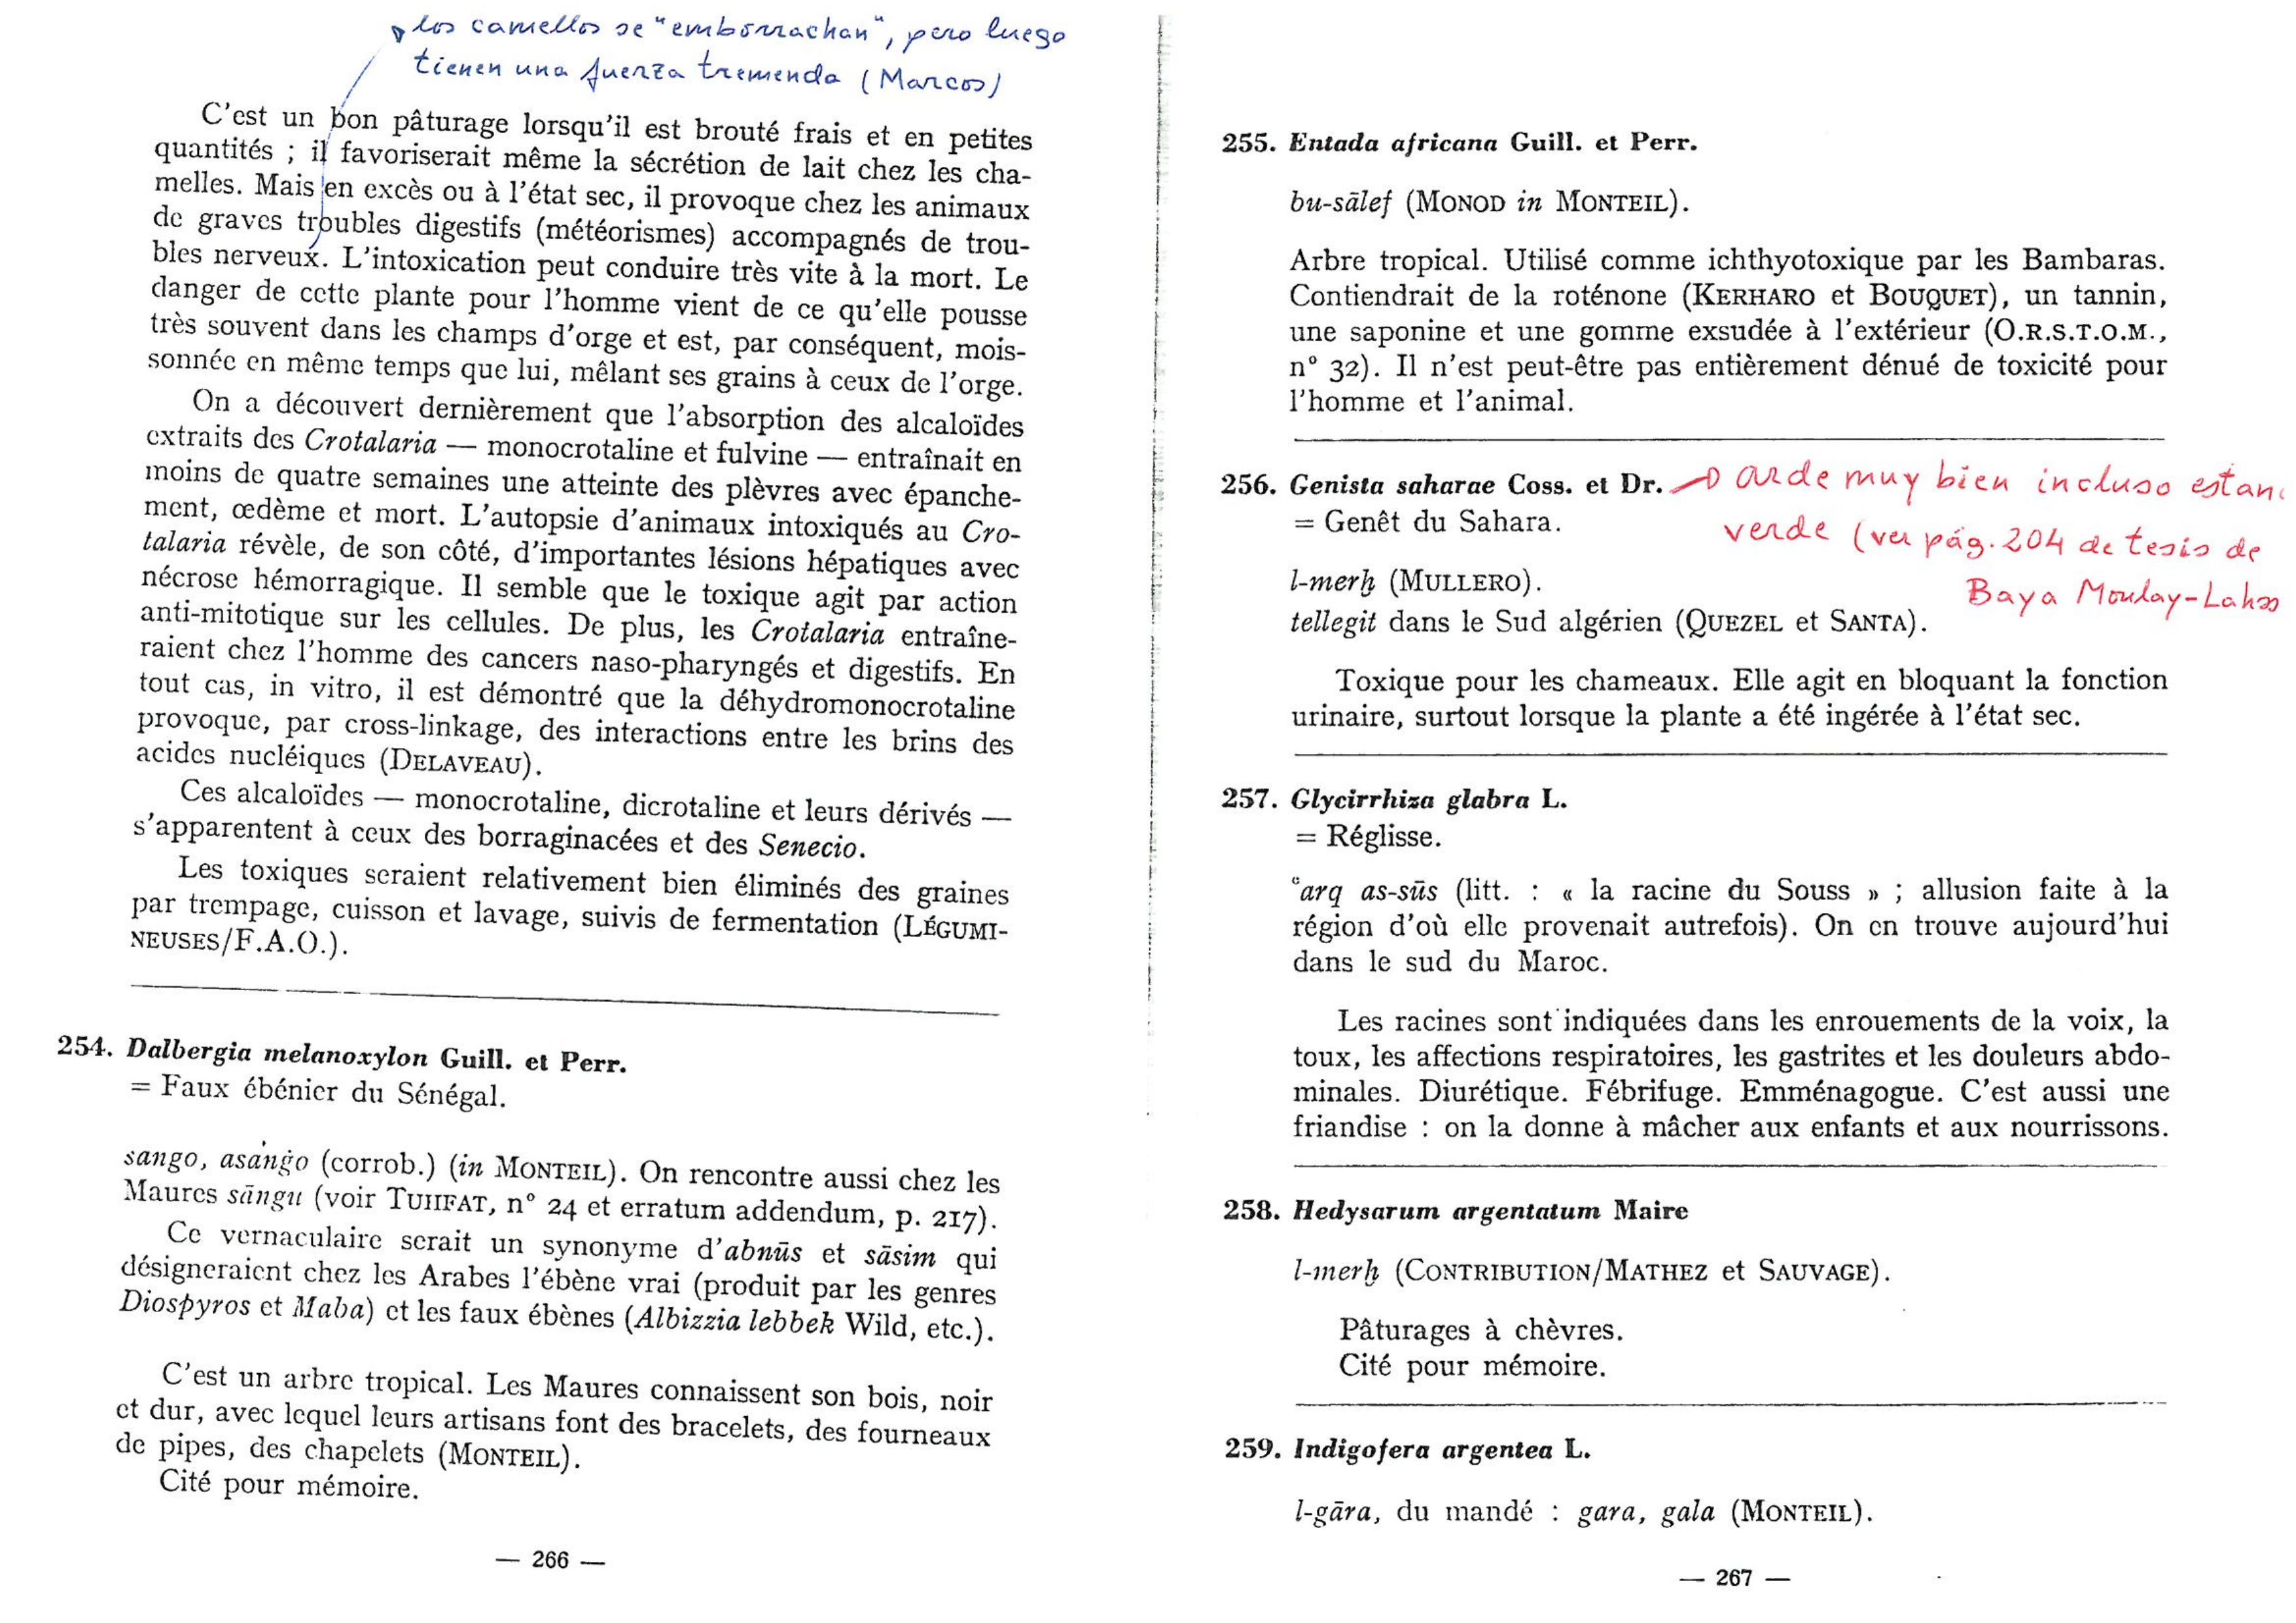 los camellos se "emborrachan", pero luego
tienen una fuerza tremenda (Marcos)
C'est un bon pâturage lorsqu'il est brouté frais et en petites
quantités ; il favoriserait même la sécrétion de lait chez les cha-
melles. Mais en excès ou à l'état sec, il provoque chez les animaux
de graves troubles digestifs (météorismes) accompagnés de trou-
bles nerveux. L'intoxication peut conduire très vite à la mort. Le
danger de cette plante pour l'homme vient de ce qu'elle pousse
très souvent dans les champs d'orge et est, par conséquent, mois-
sonnée en même temps que lui, mêlant ses grains à ceux de l'orge.
On a découvert dernièrement que l'absorption des alcaloïdes
extraits des Crotalaria — monocrotaline et fulvine — entraînait en
moins de quatre semaines une atteinte des plèvres avec épanche-
ment, œdème et mort. L'autopsie d'animaux intoxiqués au Cro-
talaria révèle, de son côté, d'importantes lésions hépatiques avec
nécrose hémorragique. Il semble que le toxique agit par action
anti-mitotique sur les cellules. De plus, les Crotalaria entraîne-
raient chez l'homme des cancers naso-pharyngés et digestifs. En
tout cas, in vitro, il est démontré que la déhydromonocrotaline
provoque, par cross-linkage, des interactions entre les brins des
acides nucléiques (DELAVEAU).
Ces alcaloïdes — monocrotaline, dicrotaline et leurs dérivés —
s'apparentent à ceux des borraginacées et des Senecio.
Les toxiques seraient relativement bien éliminés des graines
par trempage, cuisson et lavage, suivis de fermentation (LÉGUMI-
NEUSES/F.A.O.).
254. Dalbergia melanoxylon Guill. et Perr.
= Faux ébénier du Sénégal.
sango, asȧnġo (corrob.) (in MONTEIL). On rencontre aussi chez les
Maures sāngu (voir TUHFAT, n° 24 et erratum addendum, p. 217).
Ce vernaculaire serait un synonyme d'abnūs et sāsim qui
désigneraient chez les Arabes l'ébène vrai (produit par les genres
Diospyros et Maba) et les faux ébènes (Albizzia lebbek Wild, etc.).
C'est un arbre tropical. Les Maures connaissent son bois, noir
et dur, avec lequel leurs artisans font des bracelets, des fourneaux
de pipes, des chapelets (MONTEIL).
Cité pour mémoire.
— 266 —
255. Entada africana Guill. et Perr.
bu-sālef (MONOD in MONTEIL).
Arbre tropical. Utilisé comme ichthyotoxique par les Bambaras.
Contiendrait de la roténone (KERHARO et BOUQUET), un tannin,
une saponine et une gomme exsudée à l'extérieur (O.R.S.T.O.M.,
n° 32). Il n'est peut-être pas entièrement dénué de toxicité pour
l'homme et l'animal.
256. Genista saharae Coss. et Dr. arde muy bien incluso estan
= Genêt du Sahara. verde (ver pág. 204 de tesis de
Baya Moulay-Lahs
l-merḫ (MULLERO).
tellegit dans le Sud algérien (QUEZEL et SANTA).
Toxique pour les chameaux. Elle agit en bloquant la fonction
urinaire, surtout lorsque la plante a été ingérée à l'état sec.
257. Glycirrhiza glabra L.
= Réglisse.
ʿarq as-sūs (litt. : « la racine du Souss » ; allusion faite à la
région d'où elle provenait autrefois). On en trouve aujourd'hui
dans le sud du Maroc.
Les racines sont indiquées dans les enrouements de la voix, la
toux, les affections respiratoires, les gastrites et les douleurs abdo-
minales. Diurétique. Fébrifuge. Emménagogue. C'est aussi une
friandise : on la donne à mâcher aux enfants et aux nourrissons.
258. Hedysarum argentatum Maire
l-merḫ (CONTRIBUTION/MATHEZ et SAUVAGE).
Pâturages à chèvres.
Cité pour mémoire.
259. Indigofera argentea L.
l-gāra, du mandé : gara, gala (MONTEIL).
— 267 —